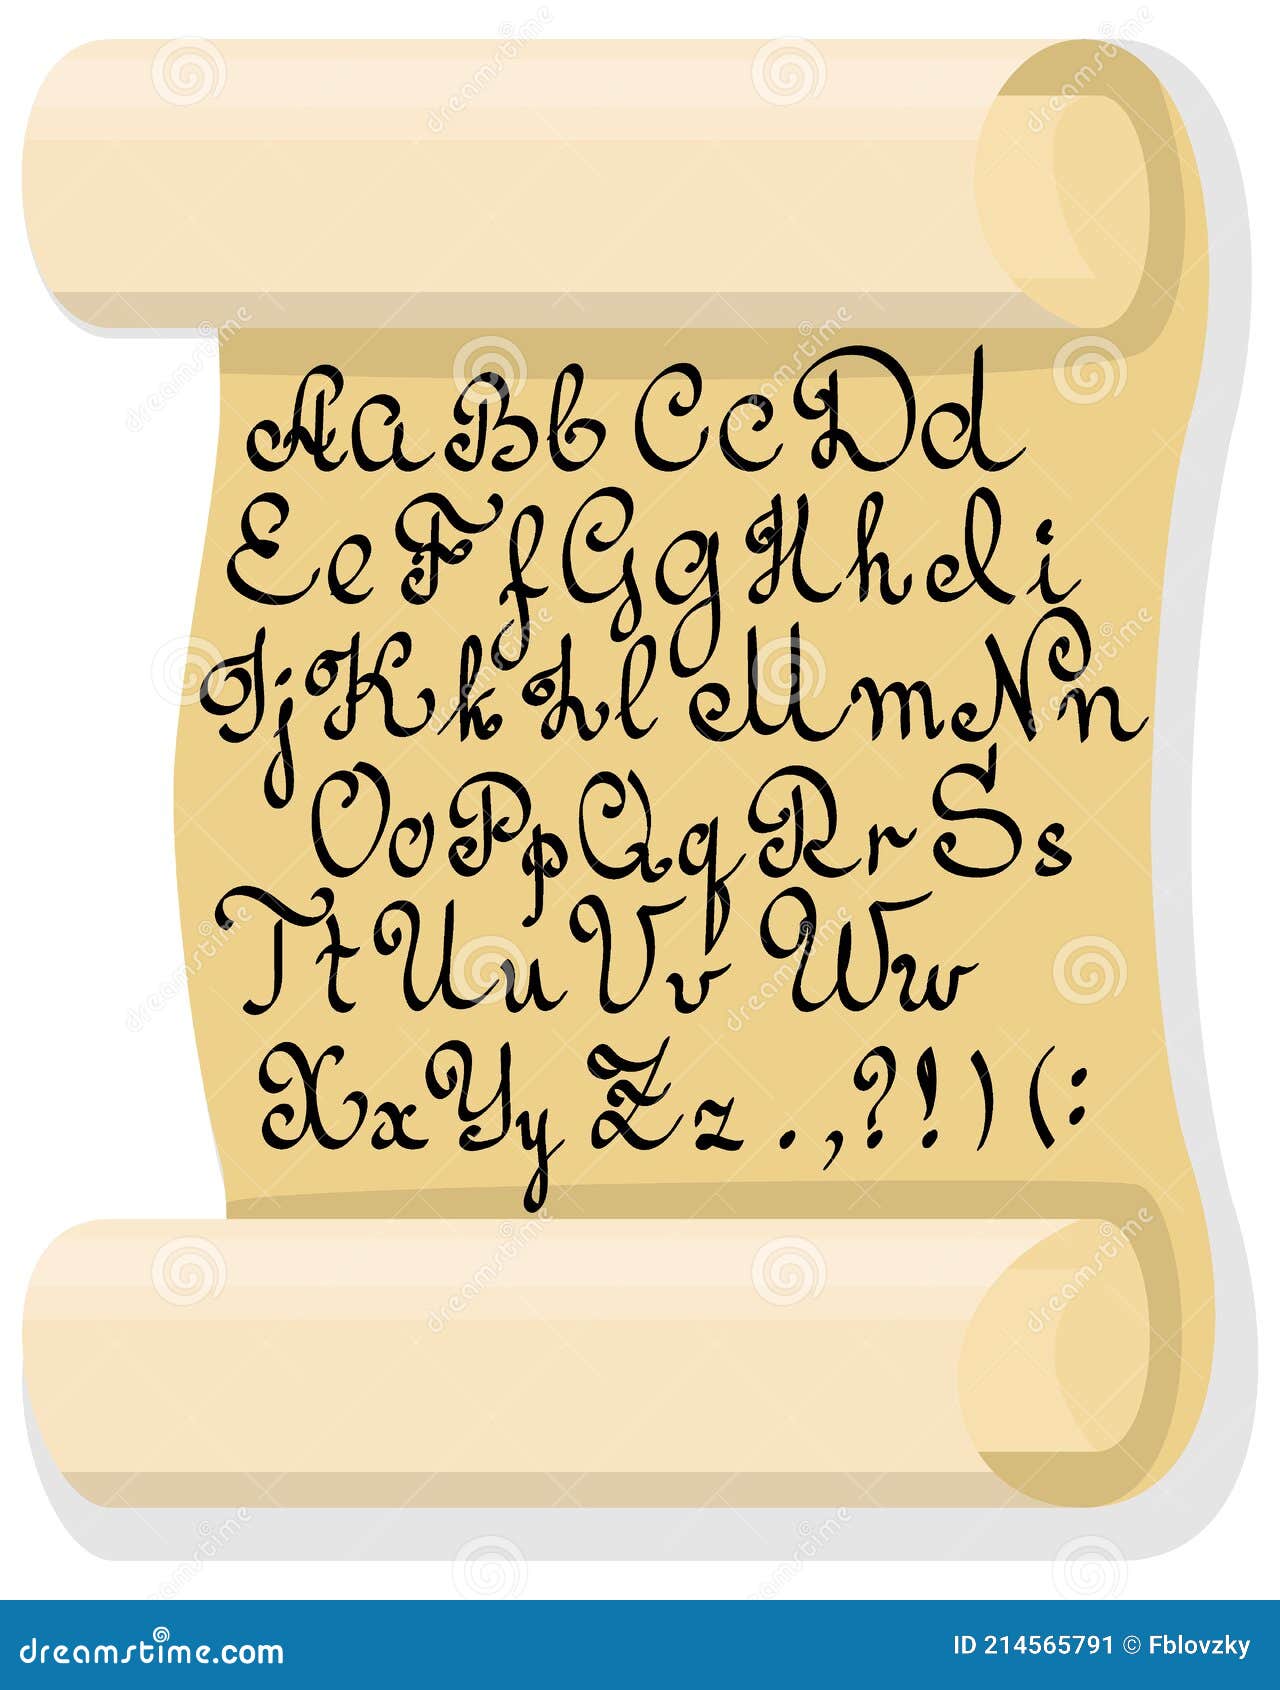 Aa Bb Cc Dd
Ee Ff Gg Hh Ii
Jj Kk Ll Mm Nn
Oo Pp Qq Rr Ss
Tt Uu Vv Ww
Xx Yy Zz . , ? ! ) ( :
dreamstime.com
ID 214565791 © Fblovzky